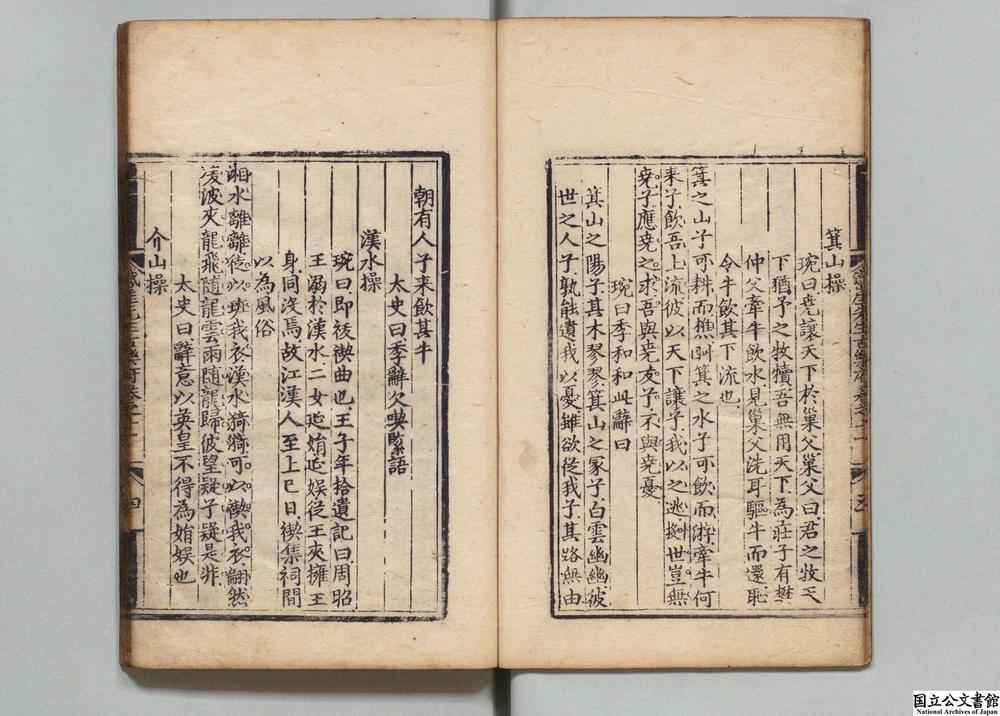 箕山操
琬曰堯讓天下於巢父巢父曰君之牧天
下猶予之牧犢吾無用天下為莊子有樊
仲父牽牛飲水見巢父洗耳驅牛而還恥
令牛飲其下流也
箕之山子可耕而樵𣃁箕之水子可飲而游牽牛何
来子飲吾上流彼以天下讓予我以之逃擬世豈無
堯子應堯之求吾與堯友子不與堯憂
琬曰季和和此辭曰
箕山之陽子其木琴琴箕山之冢子白雲幽幽彼
世之人子孰能遺我以憂雖欲從我子其路無由
朝有人子来飲其牛
太史曰季辭欠喫緊語
漢水操
琬曰即祓禊曲也王子年拾遺記曰周昭
王溺於漢水二女延娟延娱從王夾擁王
身同没焉故江漢人至上巳日禊集祠間
以為風俗
湘水離離徒以斑我衣漢水漪漪可以禊我衣翩然
凌波夾龍飛隨龍雲雨隨龍歸彼望疑子疑是非
太史曰辭意以英皇不得為娟娱也
介山操
四
国立公文書館
National Archives of Japan